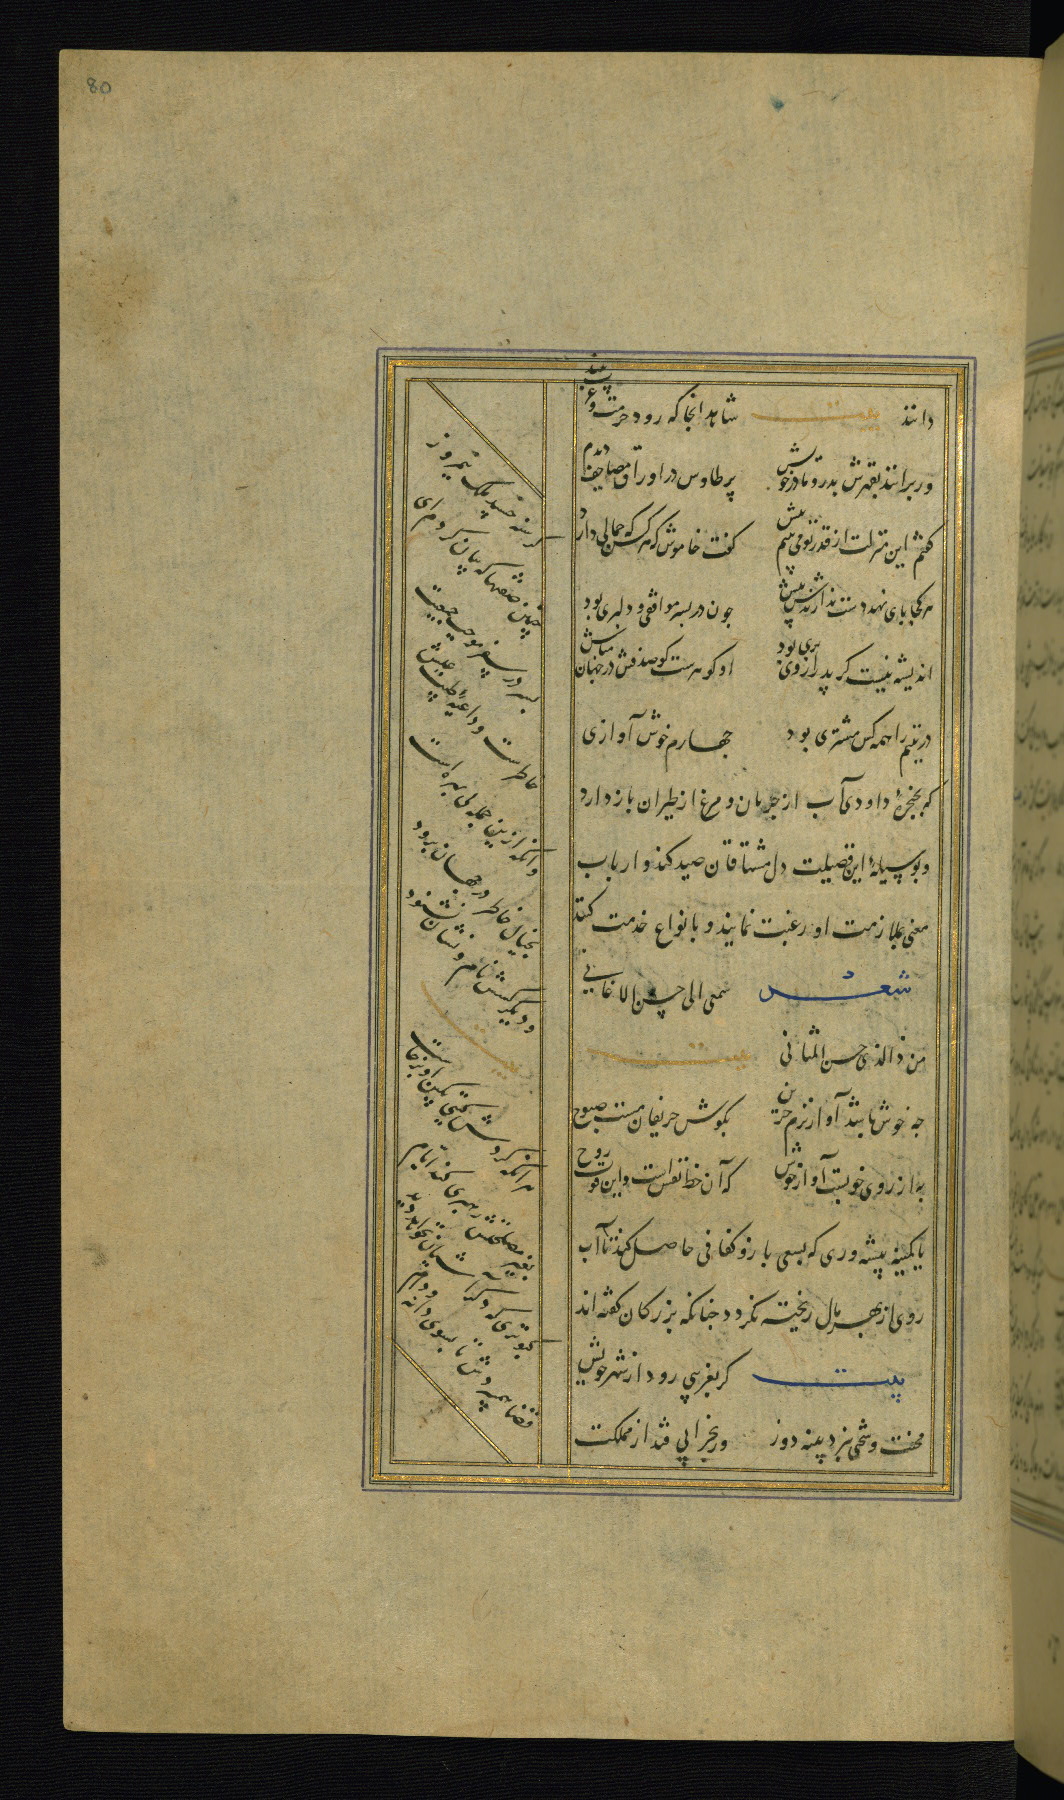 80
دانند بیت شاهد انجا که رود حرمت و عزت بیند
ور برانند بقهرش پدر و مادر خویش پر طاوس در اوراق مصاحف دیدم
گفتم این منزلت از قدر تو می بینم بیش گفت خاموش که هر کس که جمالی دارد
هر کجا پای نهد دست ندارندش پیش چون در پسر موافقی و دلبری بود
اندیشه نیست گر پدر از وی بری بود او گوهرست گو صدفش در جهان مباش
در یتیم را همه کس مشتری بود چهارم خوش آوازی
که بحنجرهٔ داودی آب از جریان و مرغ از طیران باز دارد
و بوسیلهٔ این فضیلت دل مشتاقان صید کند و ارباب
معنی بملازمت او رغبت نمایند و بانواع خدمت کنند
شعر سمعی الی حسن الاغانی
من ذا الذی حس المثانی بیت
چه خوش باشد آواز نرم حزین بگوش حریفان مست صبوح
به از روی خوبست آواز خوش که آن حظ نفس است و این قوت روح
یا کمینه پیشه وری که بسعی بازو کفافی حاصل کند تا آب
روی از بهر مال ریخته نگردد چنانکه بزرگان گفته اند
بیت گر بغریبی رود از شهر خویش
محنت و سختی نبرد پینه دوز ور بخرابی فتد از مملکت
گرسنه خسبد ملک نیمروز
چنین صفتها که بیان کردم ای
پسر در سفر موجب جمعیت
خاطرست و داعیهٔ طیب عیش
و آنکه ازین جمله بی بهره است
بخیال خاطر در جهان برود
و دیگر کسش نام و نشان نشنود
بیت
هر آنکه گردش گیتی بکین او برخاست
بغیر مصلحتش رهبری کند ایام
کبوتری که دگر آشیان نخواهد دید
قضا همی بردش تا بسوی دانه و دام